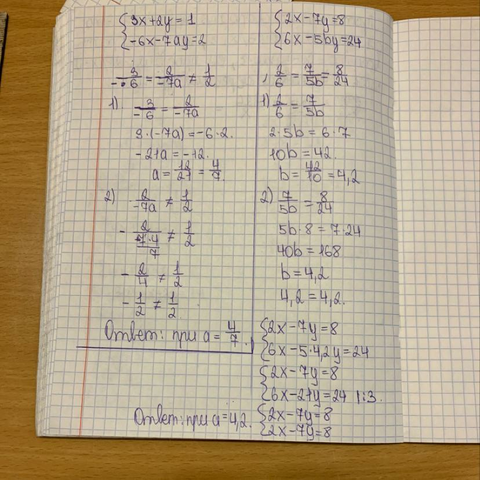 {3x+2y=1
{-6x-7ay=2
3/-6 = 2/-7a ≠ 1/2
1) 3/-6 = 2/-7a
3·(-7a)=-6·2.
-21a=-12.
a=12/21=4/7
2) 2/-7a ≠ 1/2
-2/(7·4/7) ≠ 1/2
-2/4 ≠ 1/2
-1/2 ≠ 1/2
Ответ: при a=4/7.
{2x-7y=8
{6x-5by=24
2/6=7/5b=8/24
1) 2/6=7/5b
2·5b=6·7
10b=42.
b=42/10=4,2
2) 7/5b=8/24
5b·8=7·24
40b=168
b=4,2
4,2=4,2.
{2x-7y=8
{6x-5·4,2y=24
{2x-7y=8
{6x-21y=24 |:3.
{2x-7y=8
{2x-7y=8
Ответ: при a=4,2.